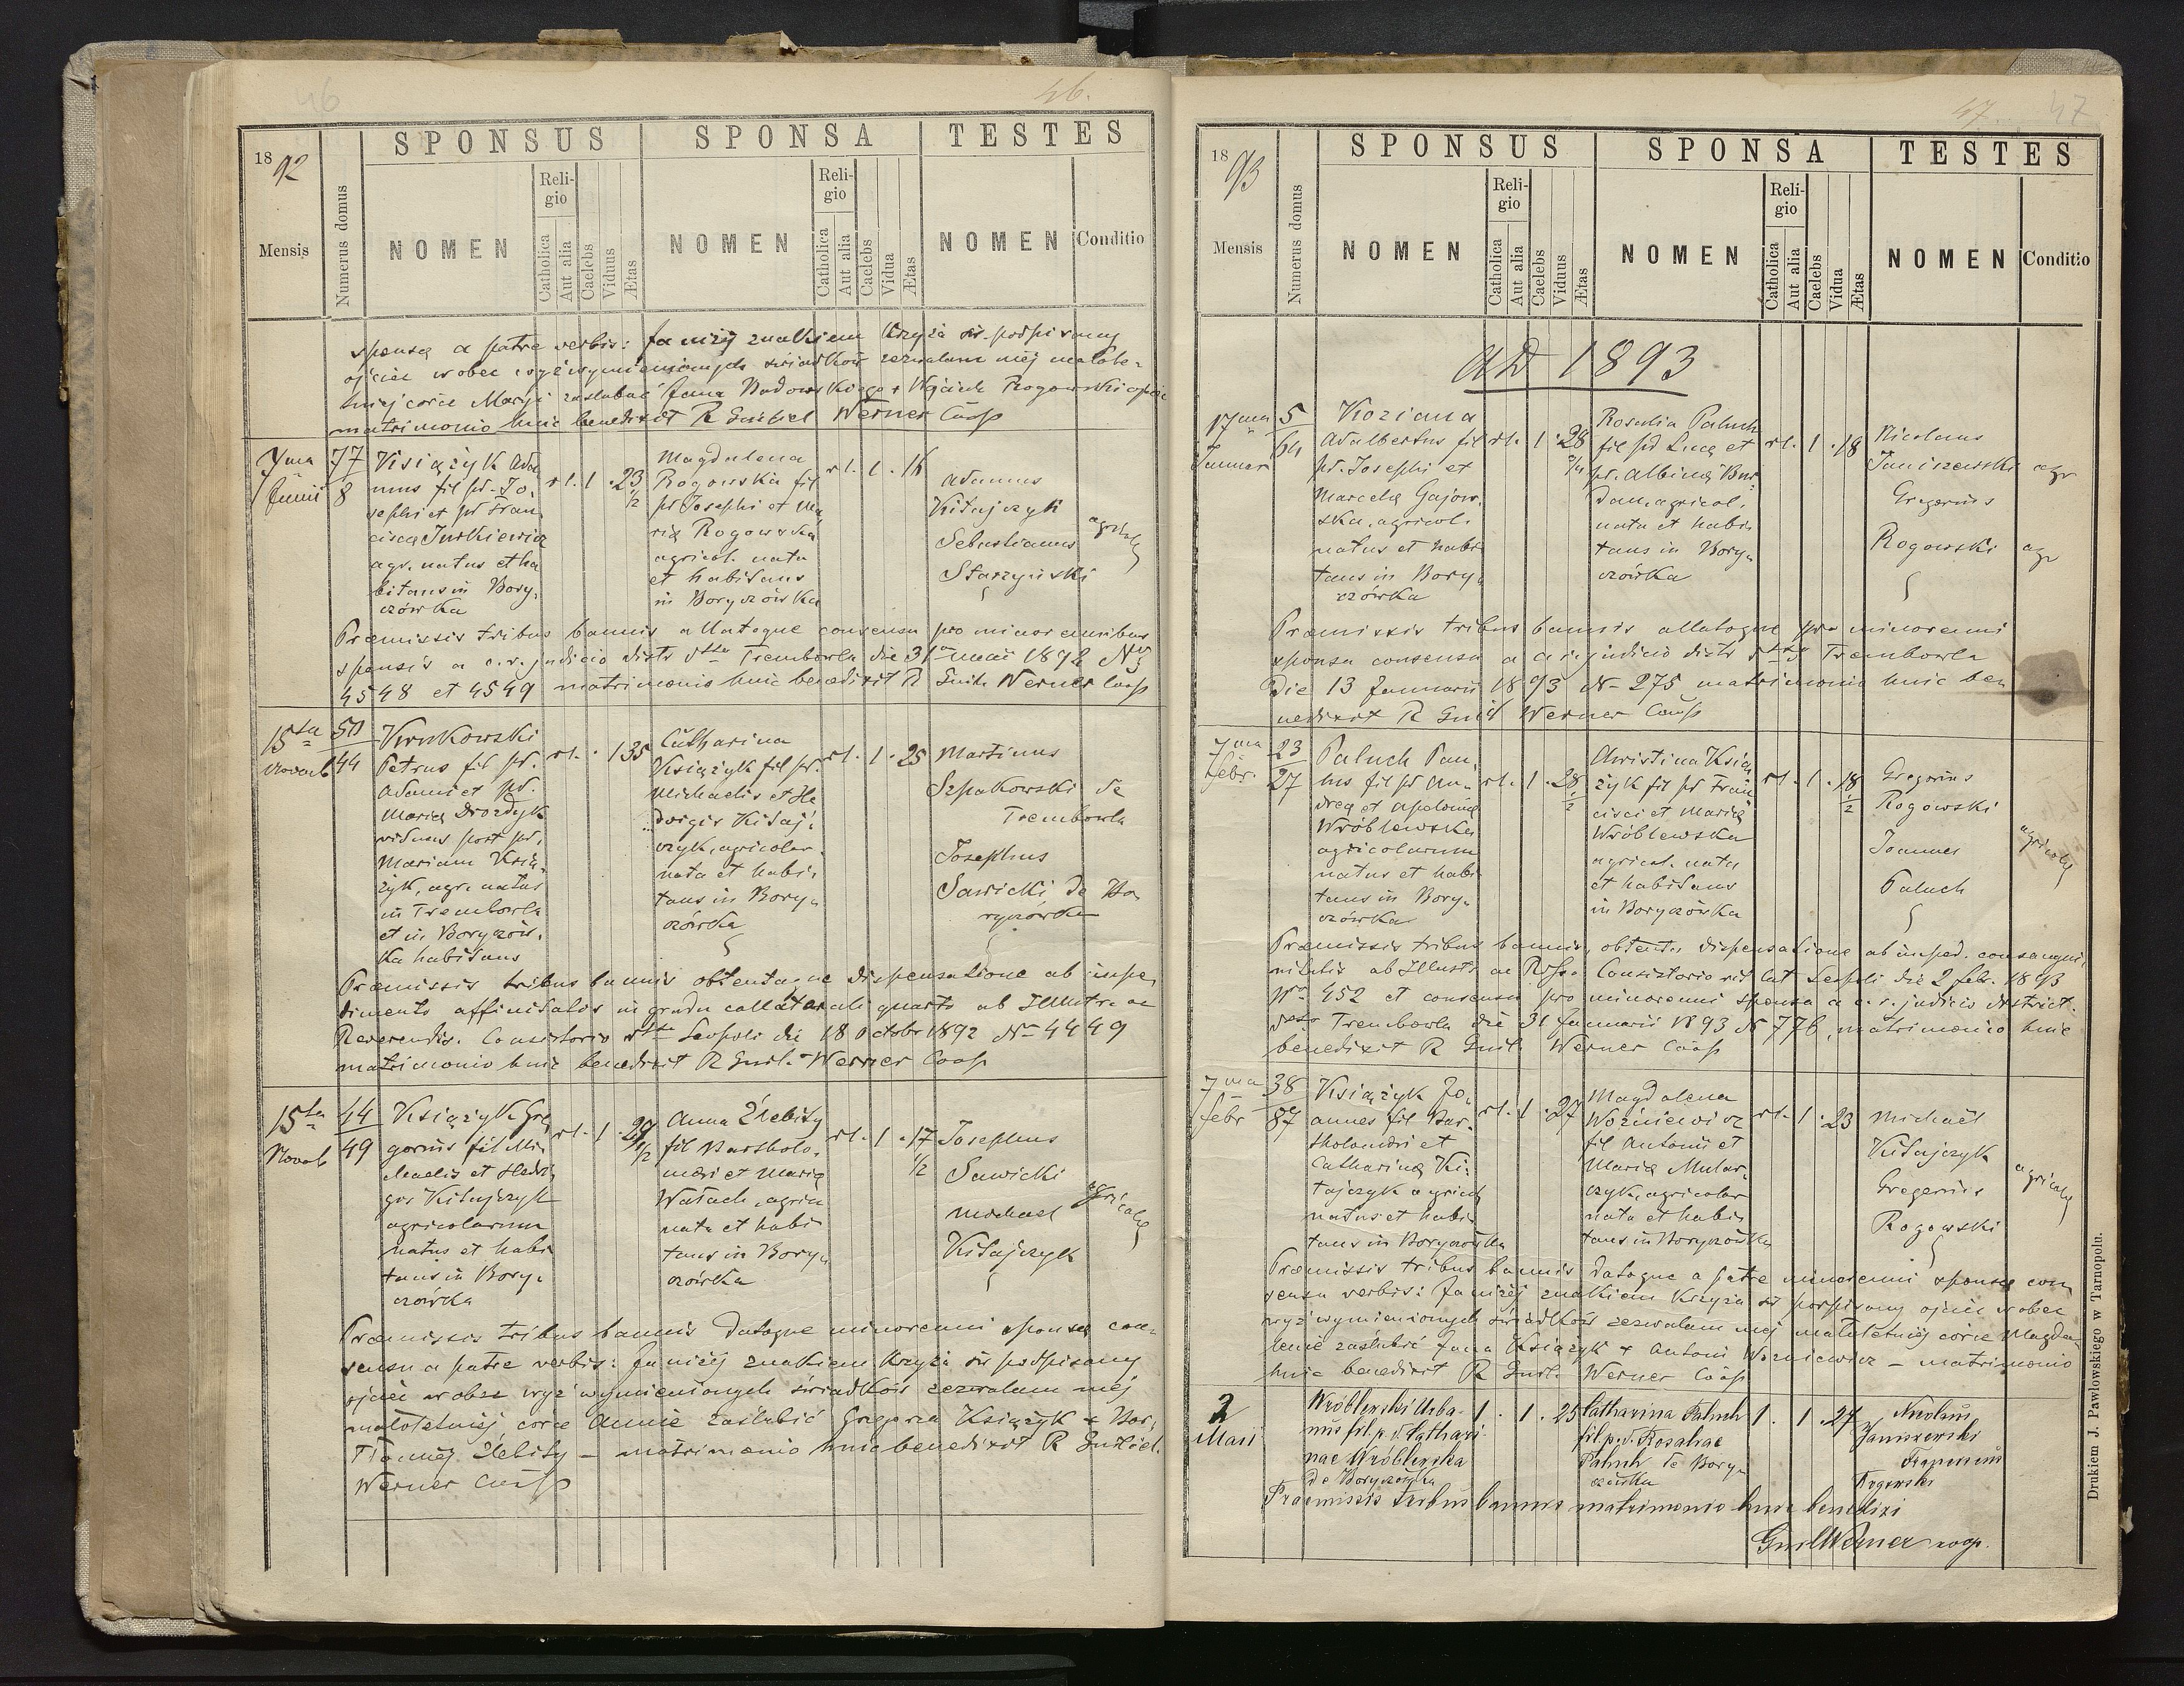 46
46.
1892
SPONSUS
SPONSA
TESTES
Mensis
Numerus domus
NOMEN
Religio
Catholica
Aut alia
Caelebs
Viduus
Ætas
NOMEN
Religio
Catholica
Aut alia
Caelebs
Vidua
Ætas
NOMEN
Conditio
sponsą a patre verbis: Ja niżej znakiem Krzyża śś. podpisany
ojciec wobec wyż wymienionych świadków zezwalam mej małole-
tniej córce Maryi zaślubić Jana + Rogowski ojciec
matrimonio huic benedixit R Werner Coop
7ma
Junii
77
8
Książyk Ada
mus fil pd. Jo-
sephi et pd Fran-
ciscą Jurkiewicz
agr. natus et ha
bitans in Bory-
czówka
rl. 1 . 23 1/2
Magdalena
Rogowska fil
pd Josephi et Ma
rią Rogowska
agricol. nata
et habitans
in Boryczówka
rl. 1 . 16
Adamus
Kitajczyk
Sebastianus
Starzyński
agricolę
Præmissis tribus bannis allatoque consensu pro minorennibus
sponsis a c. r. judicio distr dtto Trembowla die 31 Maii 1892 Nr
4548 et 4549 matrimonio huic benedixit R Guil. Werner Coop
15ta
Novemb
50
44
Krukowski
Petrus fil pd.
Adami et pd.
Marią Drozdyk
viduus post pd.
Mariam Książ-
żyk, agr. natus
in Trembowla
et in Boryczów-
ka habitans
rl. . 1 35
Catharina
Książyk fil pd.
Michaelis et He
dvigis Kitaj-
czyk, agricolar.
nata et habi-
tans in Bory-
czówka
rl. 1 . 25
Martinus
Szpakowski de
Trembowla
Josephus
Sawicki de Bo
ryczówka
Præmissis tribus bannis obtentaque dispensatione ab impe-
dimento affinitatis in gradu collaterali quarto ab Illustr. ac
Reverendis. Consistorio dtto Leopoli die 18 Octobr 1892 Nr 4449
matrimonio huic benedixit R Guil. Werner Coop
15ta
Novemb
44
49
Książyk Gre
gorius fil Mi-
chaelis et Hedvi-
gis Kitajczyk
agricolarum
natus et habi
tans in Bory-
czówka
rl. 1 . 29 1/2
Anna Żlebity
fil Bartholo-
mæi et Marią
Wałach, agric.
nata et habi
tans in Bory-
czówka
rl. 1 . 17 1/2
Josephus
Sawicki
Michael
Kitajczyk
agricolę
Præmissis tribus bannis datoque minorenni sponsą con-
sensu a patre verbis: Ja niżej znakiem Krzyża śś podpisany
ojciec wobec wyż wymienionych świadków zezwalam mej
małoletniej córce Annie zaślubić Gregorza Książyk + Bar-
tłomiej Żlebity – matrimonio huic benedixit R Guil.
Werner Coop
47.
47
1893
SPONSUS
SPONSA
TESTES
Mensis
Numerus domus
NOMEN
Religio
Catholica
Aut alia
Caelebs
Viduus
Ætas
NOMEN
Religio
Catholica
Aut alia
Caelebs
Vidua
Ætas
NOMEN
Conditio
AD 1893
17ma
Januar
5
64
Koziana
Adalbertus fil
pd. Josephi et
Marcelą Gajow-
ska, agricol.
natus et habi-
tans in Bory-
czówka
rl. 1 . 28
Rosalia Paluch
fil pd Lucą et
pd. Albiną Bur-
dan, agricol.
nata et habi-
tans in Bory-
czówka
rl. 1 . 18
Nicolaus
Janiszewski agr
Gregorius
Rogowski agr
Præmissis tribus bannis allatoque pro minorenni
sponsa consensu a c. r. judicio distr dtto Trembowla
die 13 Januarii 1893 N- 275 matrimonio huic be
nedixit R Guil Werner Coop
7ma
Febr.
23
27
Paluch Pau-
lus fil pd An-
dreą et Apolonią
Wróblewska
agricolarum
natus et habi
tans in Bory-
czówka
rl. 1 . 28 1/2
Christina Książ
żyk fil pd Fran
cisci et Marią
Wróblewska
agricol. nata
et habitans
in Boryczówka
rl. 1 . 18 1/2
Gregorius
Rogowski
Joannes
Paluch
agricolę
Præmissis tribus bannis, obtenta dispensatione ab imped. consangui-
nitatis ab Illustr ac Rsso. Consistorio rit lat Leopoli die 2 febr. 1893
Nro 452 et consensu pro minorenni sponsa a c. r. judicio district.
dtto Trembowla die 31 Januarii 1893 N 776, matrimonio huic
benedixit R Guil. Werner Coop
7ma
Febr
38
87
Książyk Jo-
annes fil Bar-
tholomæi et
Catharina Ki-
tajczyk agricol
natus et habi-
tans in Boryczówka
rl. 1 . 27
Magdalena
Woźniewicz
fil Antonii et
Marią Mular-
czyk, agricolar
nata et habi-
tans in Boryczówka
rl. 1 . 23
Michaël
Kitajczyk
Gregorius
Rogowski
agricolę
Præmissis tribus bannis datoque a patre minorenni sponsą con
sensu verbis: Ja niżej znakiem Krzyża śś podpisany ojciec wobec
wyż wymienionych świadków zezwalam mej małoletniej córce Magda-
lenie zaślubić Jana Książyk + Antoni Woźniewicz – matrimonio
huic benedixit R Guil. Werner Coop
2
Maii
Wróblewski Urba-
nus fil. p. d. Cathari-
nae Wróblewska
de Boryczówka
1. 1. 25
Catharina Paluch
fil. p. d. Rosaliae
Paluch de Bory-
czówka
1. 1. 24
Nicolaus
Janiszewski
Rogowski
Praemissis tribus bannis matrimonio huic benedixi
Guil Werner coop.
Drukiem J. Pawłowskiego w Tarnopolu.